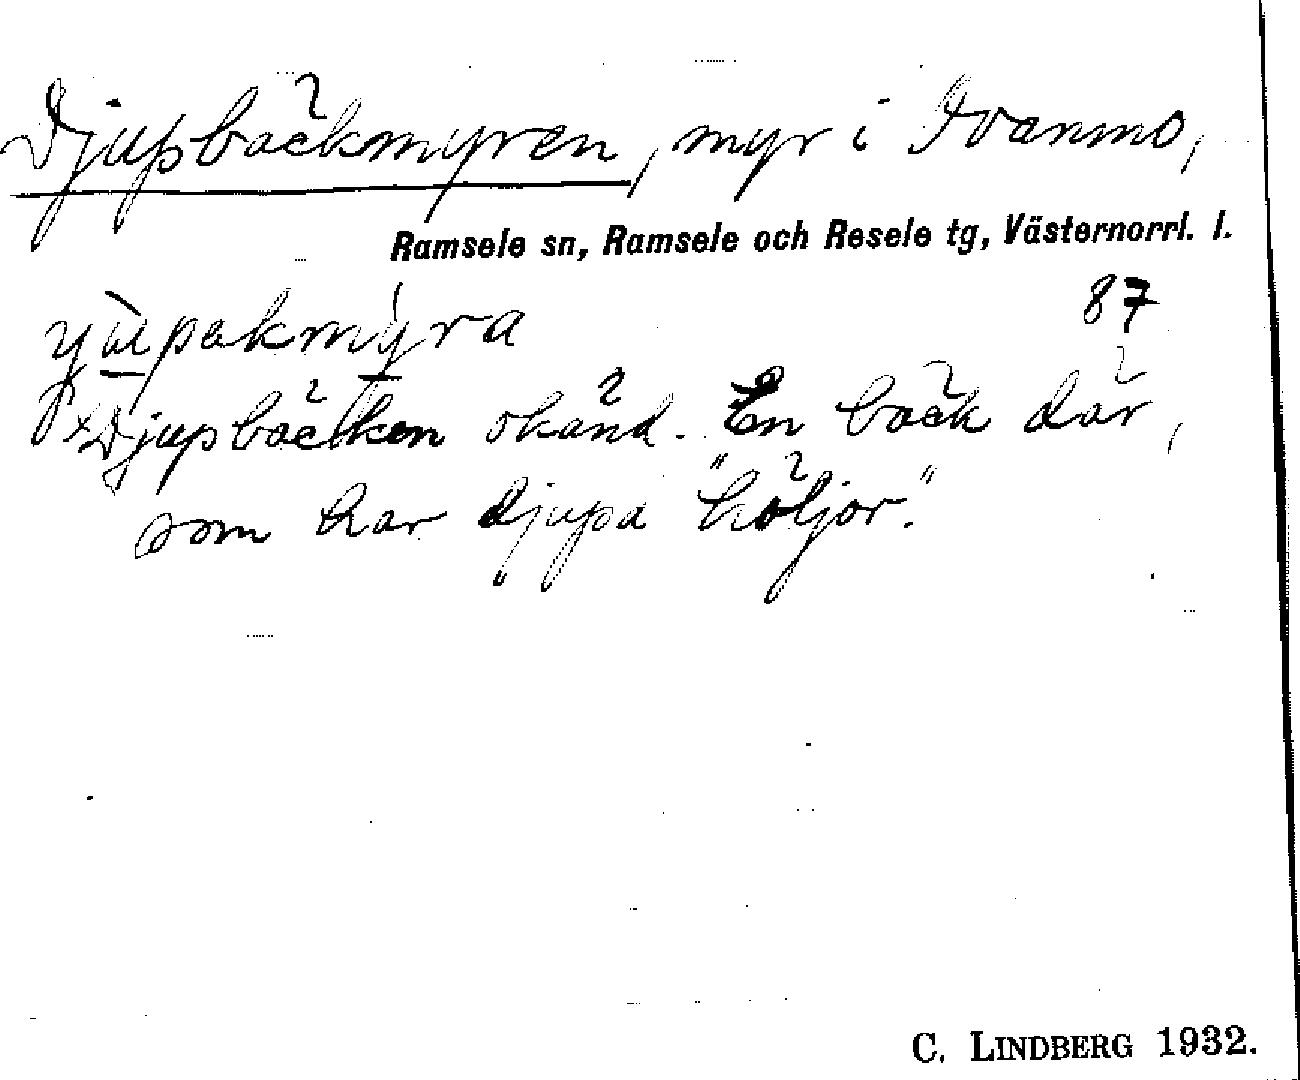 Djupbäckmyren, myr i Ivanmo,
Ramsele sn, Ramsele och Resele tg, Västernorrl. l.
87
xDjupbäcken okänd. En bäck där,
som har djupa "höljor".
C. LINDBERG 1932.